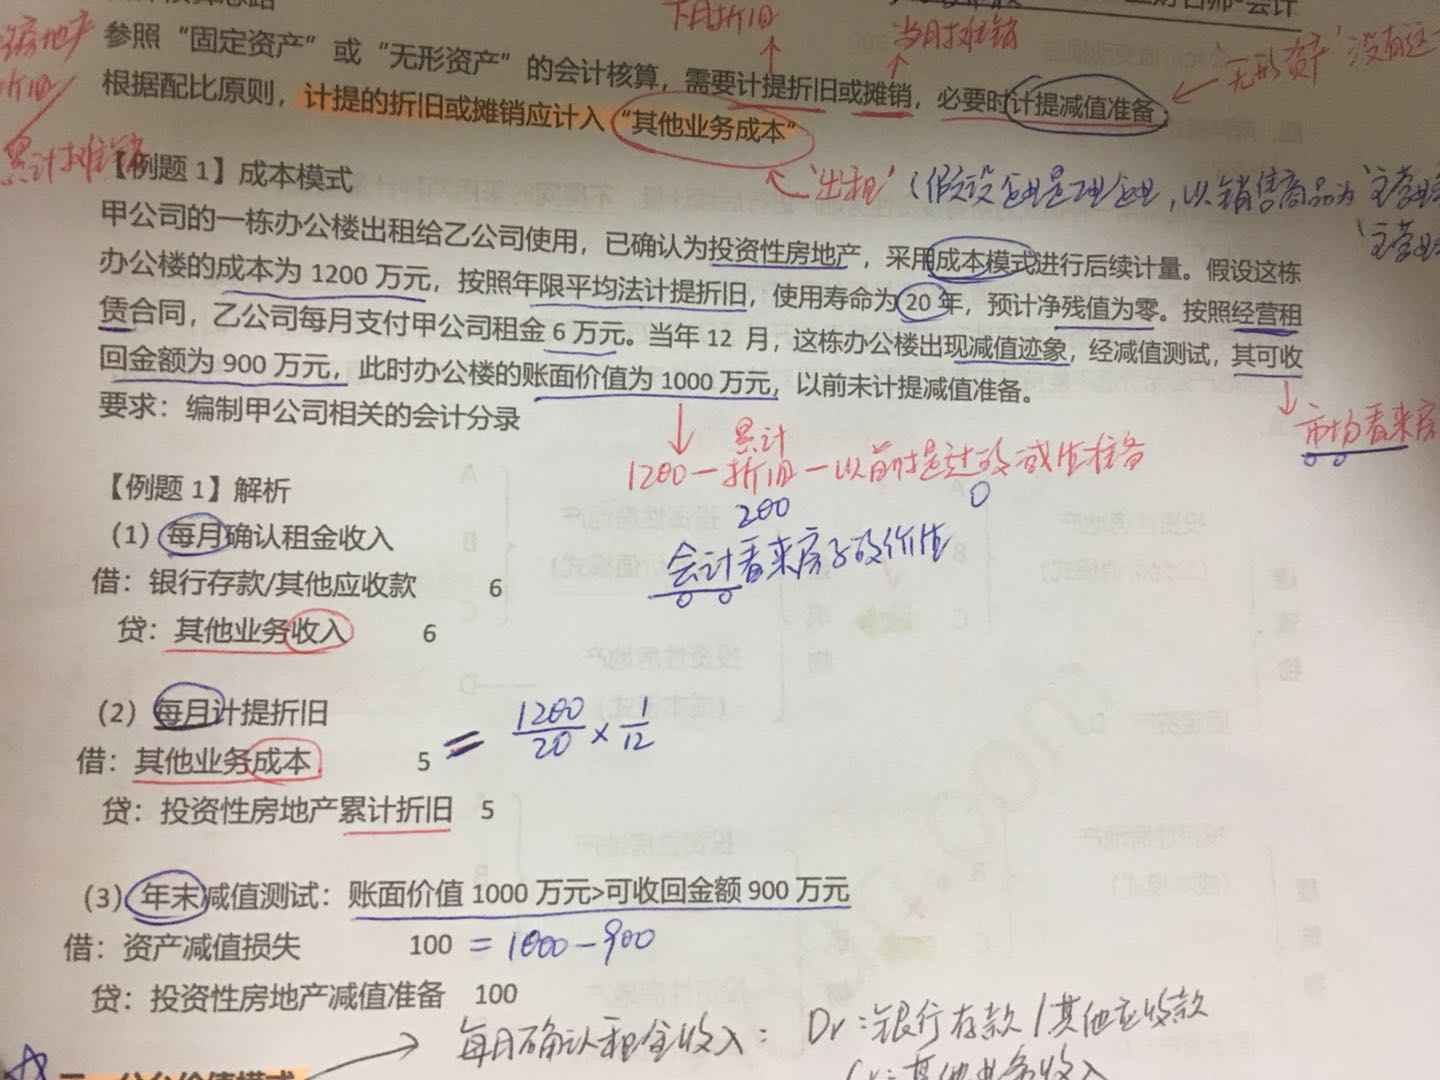 下月折旧
当月摊销
参照“固定资产”或“无形资产”的会计核算，需要计提折旧或摊销，必要时计提减值准备
“无形资产”
根据配比原则，计提的折旧或摊销应计入“其他业务成本”
累计摊销
“出租”（假设企业是工业企业，以销售商品为“主营业
【例题1】成本模式
甲公司的一栋办公楼出租给乙公司使用，已确认为投资性房地产，采用成本模式进行后续计量。假设这栋
办公楼的成本为1200万元，按照年限平均法计提折旧，使用寿命为20年，预计净残值为零。按照经营租
赁合同，乙公司每月支付甲公司租金6万元。当年12 月，这栋办公楼出现减值迹象，经减值测试，其可收
回金额为900万元，此时办公楼的账面价值为1000万元，以前未计提减值准备。
要求：编制甲公司相关的会计分录
市场看来房
1200－累计折旧－以前计提过的减值准备
200
0
会计看来房子的价值
【例题1】解析
（1）每月确认租金收入
借：银行存款/其他应收款 6
贷：其他业务收入 6
（2）每月计提折旧
借：其他业务成本 5 = 1200/20 × 1/12
贷：投资性房地产累计折旧 5
（3）年末减值测试：账面价值1000万元>可收回金额900万元
借：资产减值损失 100 = 1000－900
贷：投资性房地产减值准备 100
每月确认租金收入： Dr：银行存款/其他应收款
Cr：其他业务收入